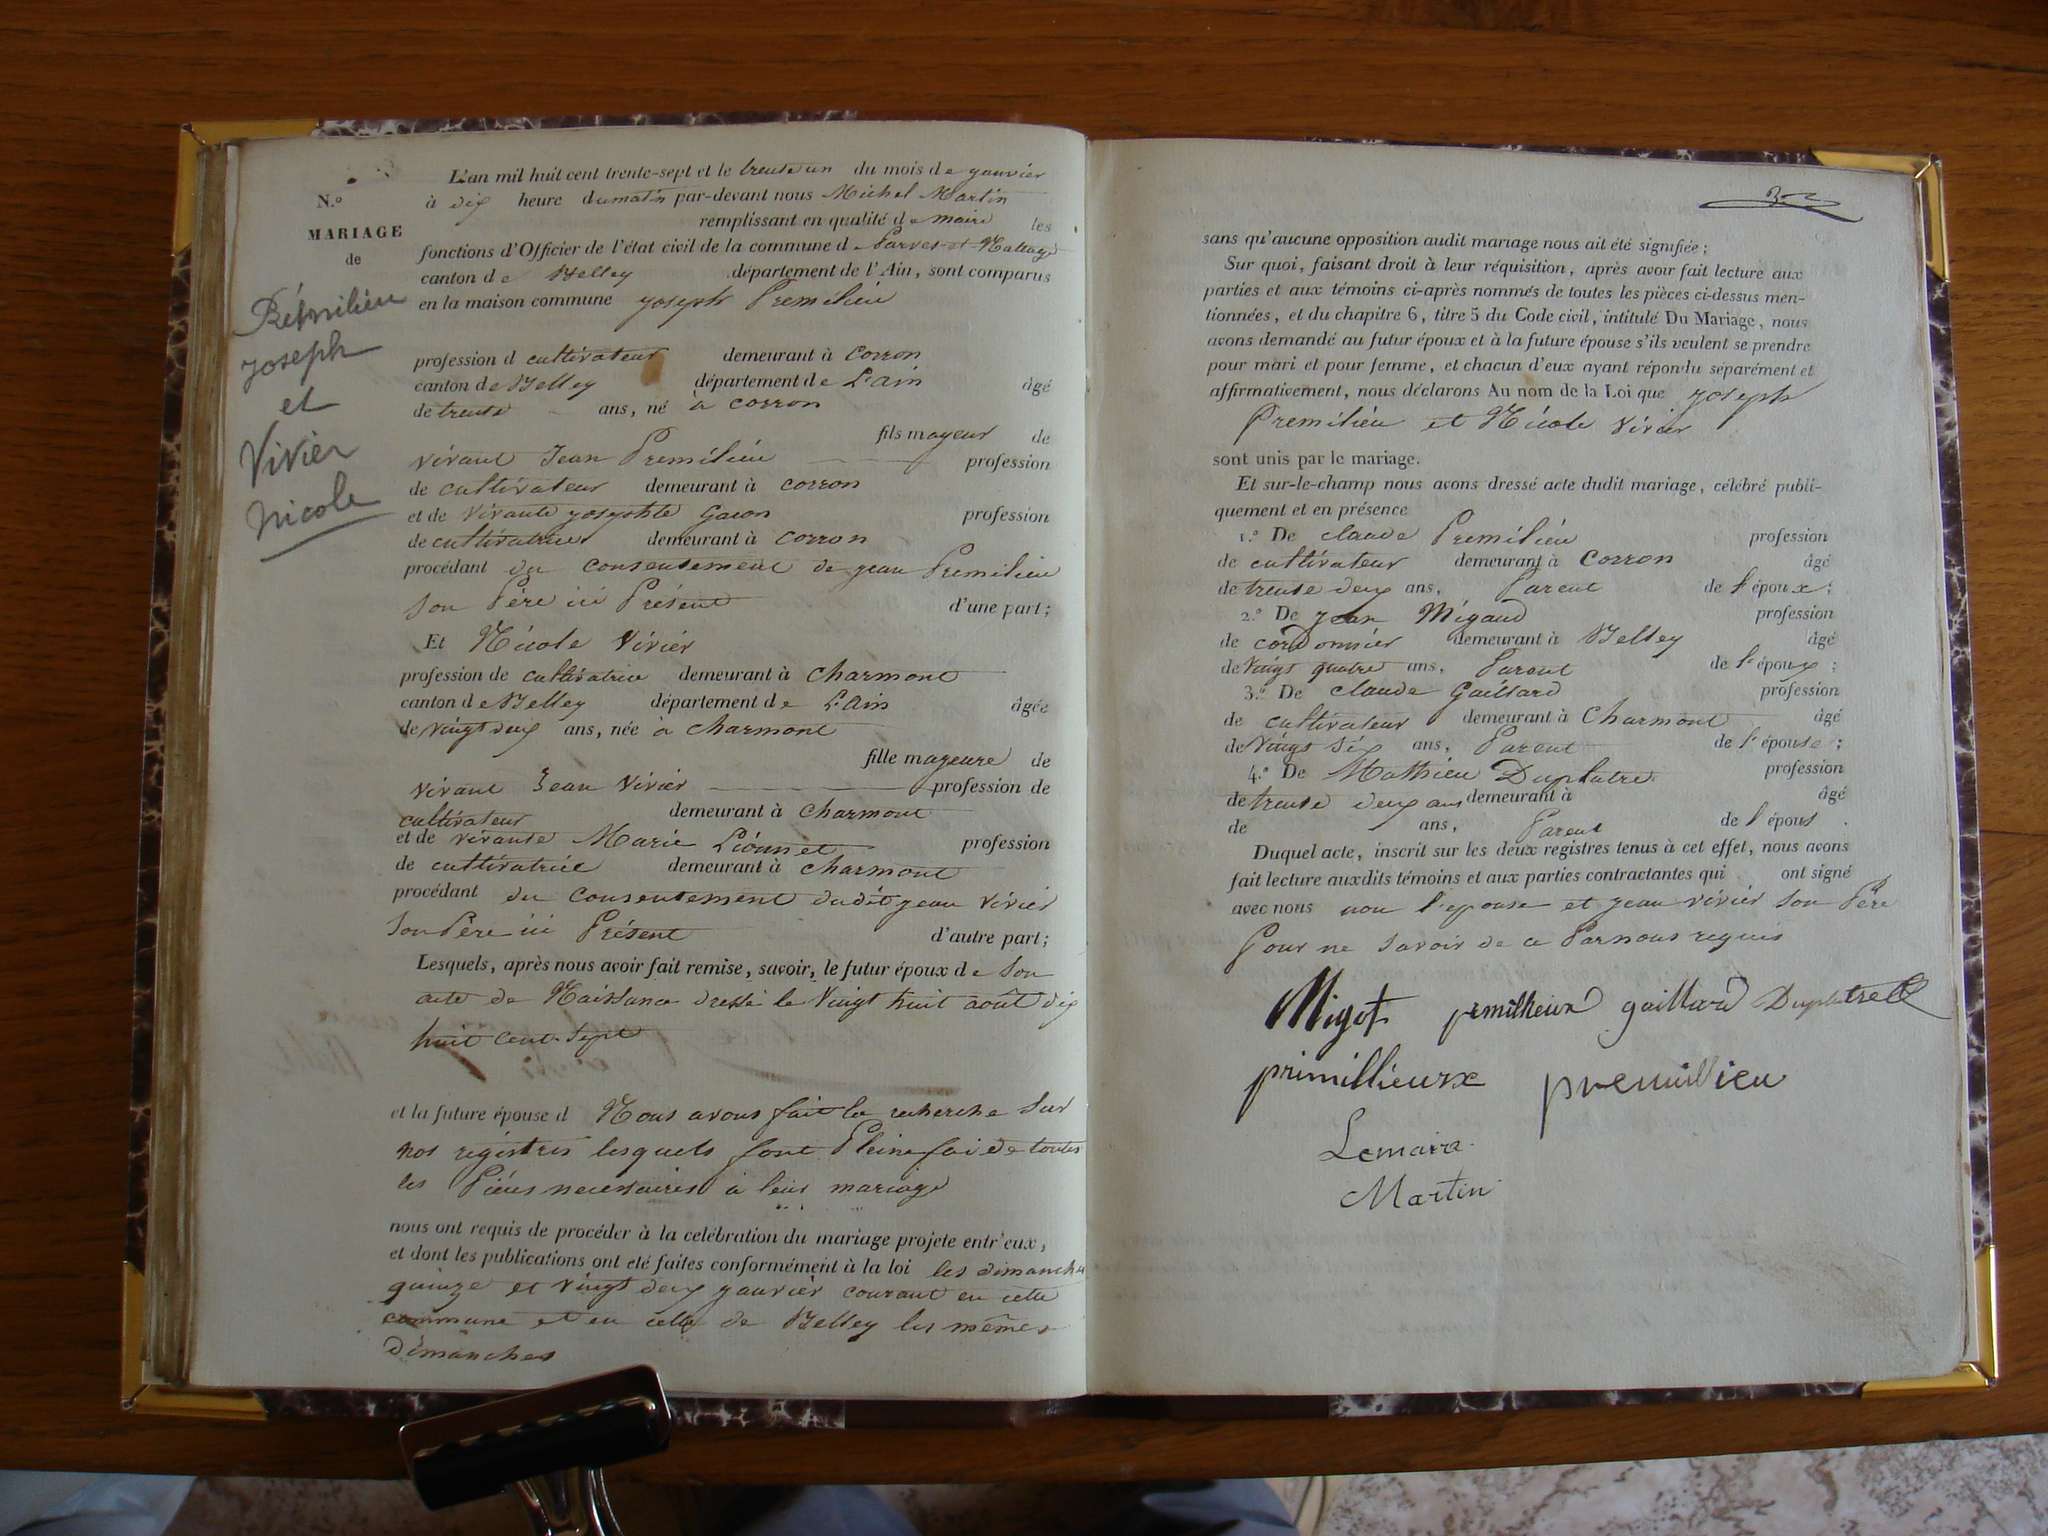 N.º
MARIAGE
de
Prémilieu
Joseph
et
Vivier
Nicole
L'an mil huit cent trente-sept et le trente un du mois de janvier
à dix heure du matin par-devant nous Michel Martin
remplissant en qualité de maire les
fonctions d'Officier de l'état civil de la commune d Parves et
canton de Belley département de l'Ain, sont comparus
en la maison commune joseph Premilieu
profession d cultivateur demeurant à corron
canton de Belley département de L'ain âgé
de trente ans, né à corron
fils mayeur de
vivant Jean Premilieu profession
de cultivateur demeurant à corron
et de vivante josephte gacon profession
de cultivatrice demeurant à corron
procédant du consentement de jean Premilieu
son Père ici Présent d'une part;
Et Nicole Vivier
profession de cultivatrice demeurant à charmont
canton de Belley département de L'ain âgée
de vingt deux ans, née à charmont
fille mayeure de
vivant Jean Vivier profession de
cultivateur demeurant à charmont
et de vivante Marie profession
de cultivatrice demeurant à charmont
procédant du consentement dudit jean vivier
son Père ici Présent d'autre part;
Lesquels, après nous avoir fait remise, savoir, le futur époux de son
acte de Naissance dressé le vingt huit août dix
huit cent sept
et la future épouse d Nous avons fait la recherche sur
nos registres lesquels font Pleine foi de toutes
les Pièces necessaires à leur mariage
nous ont requis de procéder à la celébration du mariage projete entr'eux,
et dont les publications ont eté faites conformément à la loi les dimanches
quinze et vingt deux janvier courant en cette
commune et en celle de Belley les mêmes
dimanches
sans qu'aucune opposition audit mariage nous ait été signifiée;
Sur quoi, faisant droit à leur réquisition, après avoir fait lecture aux
parties et aux témoins ci-après nommés de toutes les pièces ci-dessus men-
tionnées, et du chapitre 6, titre 5 du Code civil, intitulé Du Mariage, nous
avons demandé au futur époux et à la future épouse s'ils veulent se prendre
pour mari et pour femme, et chacun d'eux ayant répondu séparément et
affirmativement, nous déclarons Au nom de la Loi que joseph
Premilieu et Nicole vivier
sont unis par le mariage.
Et sur-le-champ nous avons dressé acte dudit mariage, célébré publi-
quement et en présence
1.º De claude Premilieu profession
de cultivateur demeurant à corron âgé
de trente deux ans, Parent de l'époux;
2.º De jean Migaud profession
de cordonnier demeurant à Belley âgé
de vingt quatre ans, Parent de l'époux;
3.º De claude Gaillard profession
de cultivateur demeurant à Charmont âgé
de vingt six ans, Parent de l'épouse;
4.º De Mathieu Duplatre profession
de trente deux ans demeurant à âgé
de ans, Parent de l'épous.
Duquel acte, inscrit sur les deux registres tenus à cet effet, nous avons
fait lecture auxdits témoins et aux parties contractantes qui ont signé
avec nous non l'epouse et jean vivier son Père
Pour ne savoir de ce Par nous requis
Migot premilheux gaillard
primillieux premillieu
Lemaire
Martin